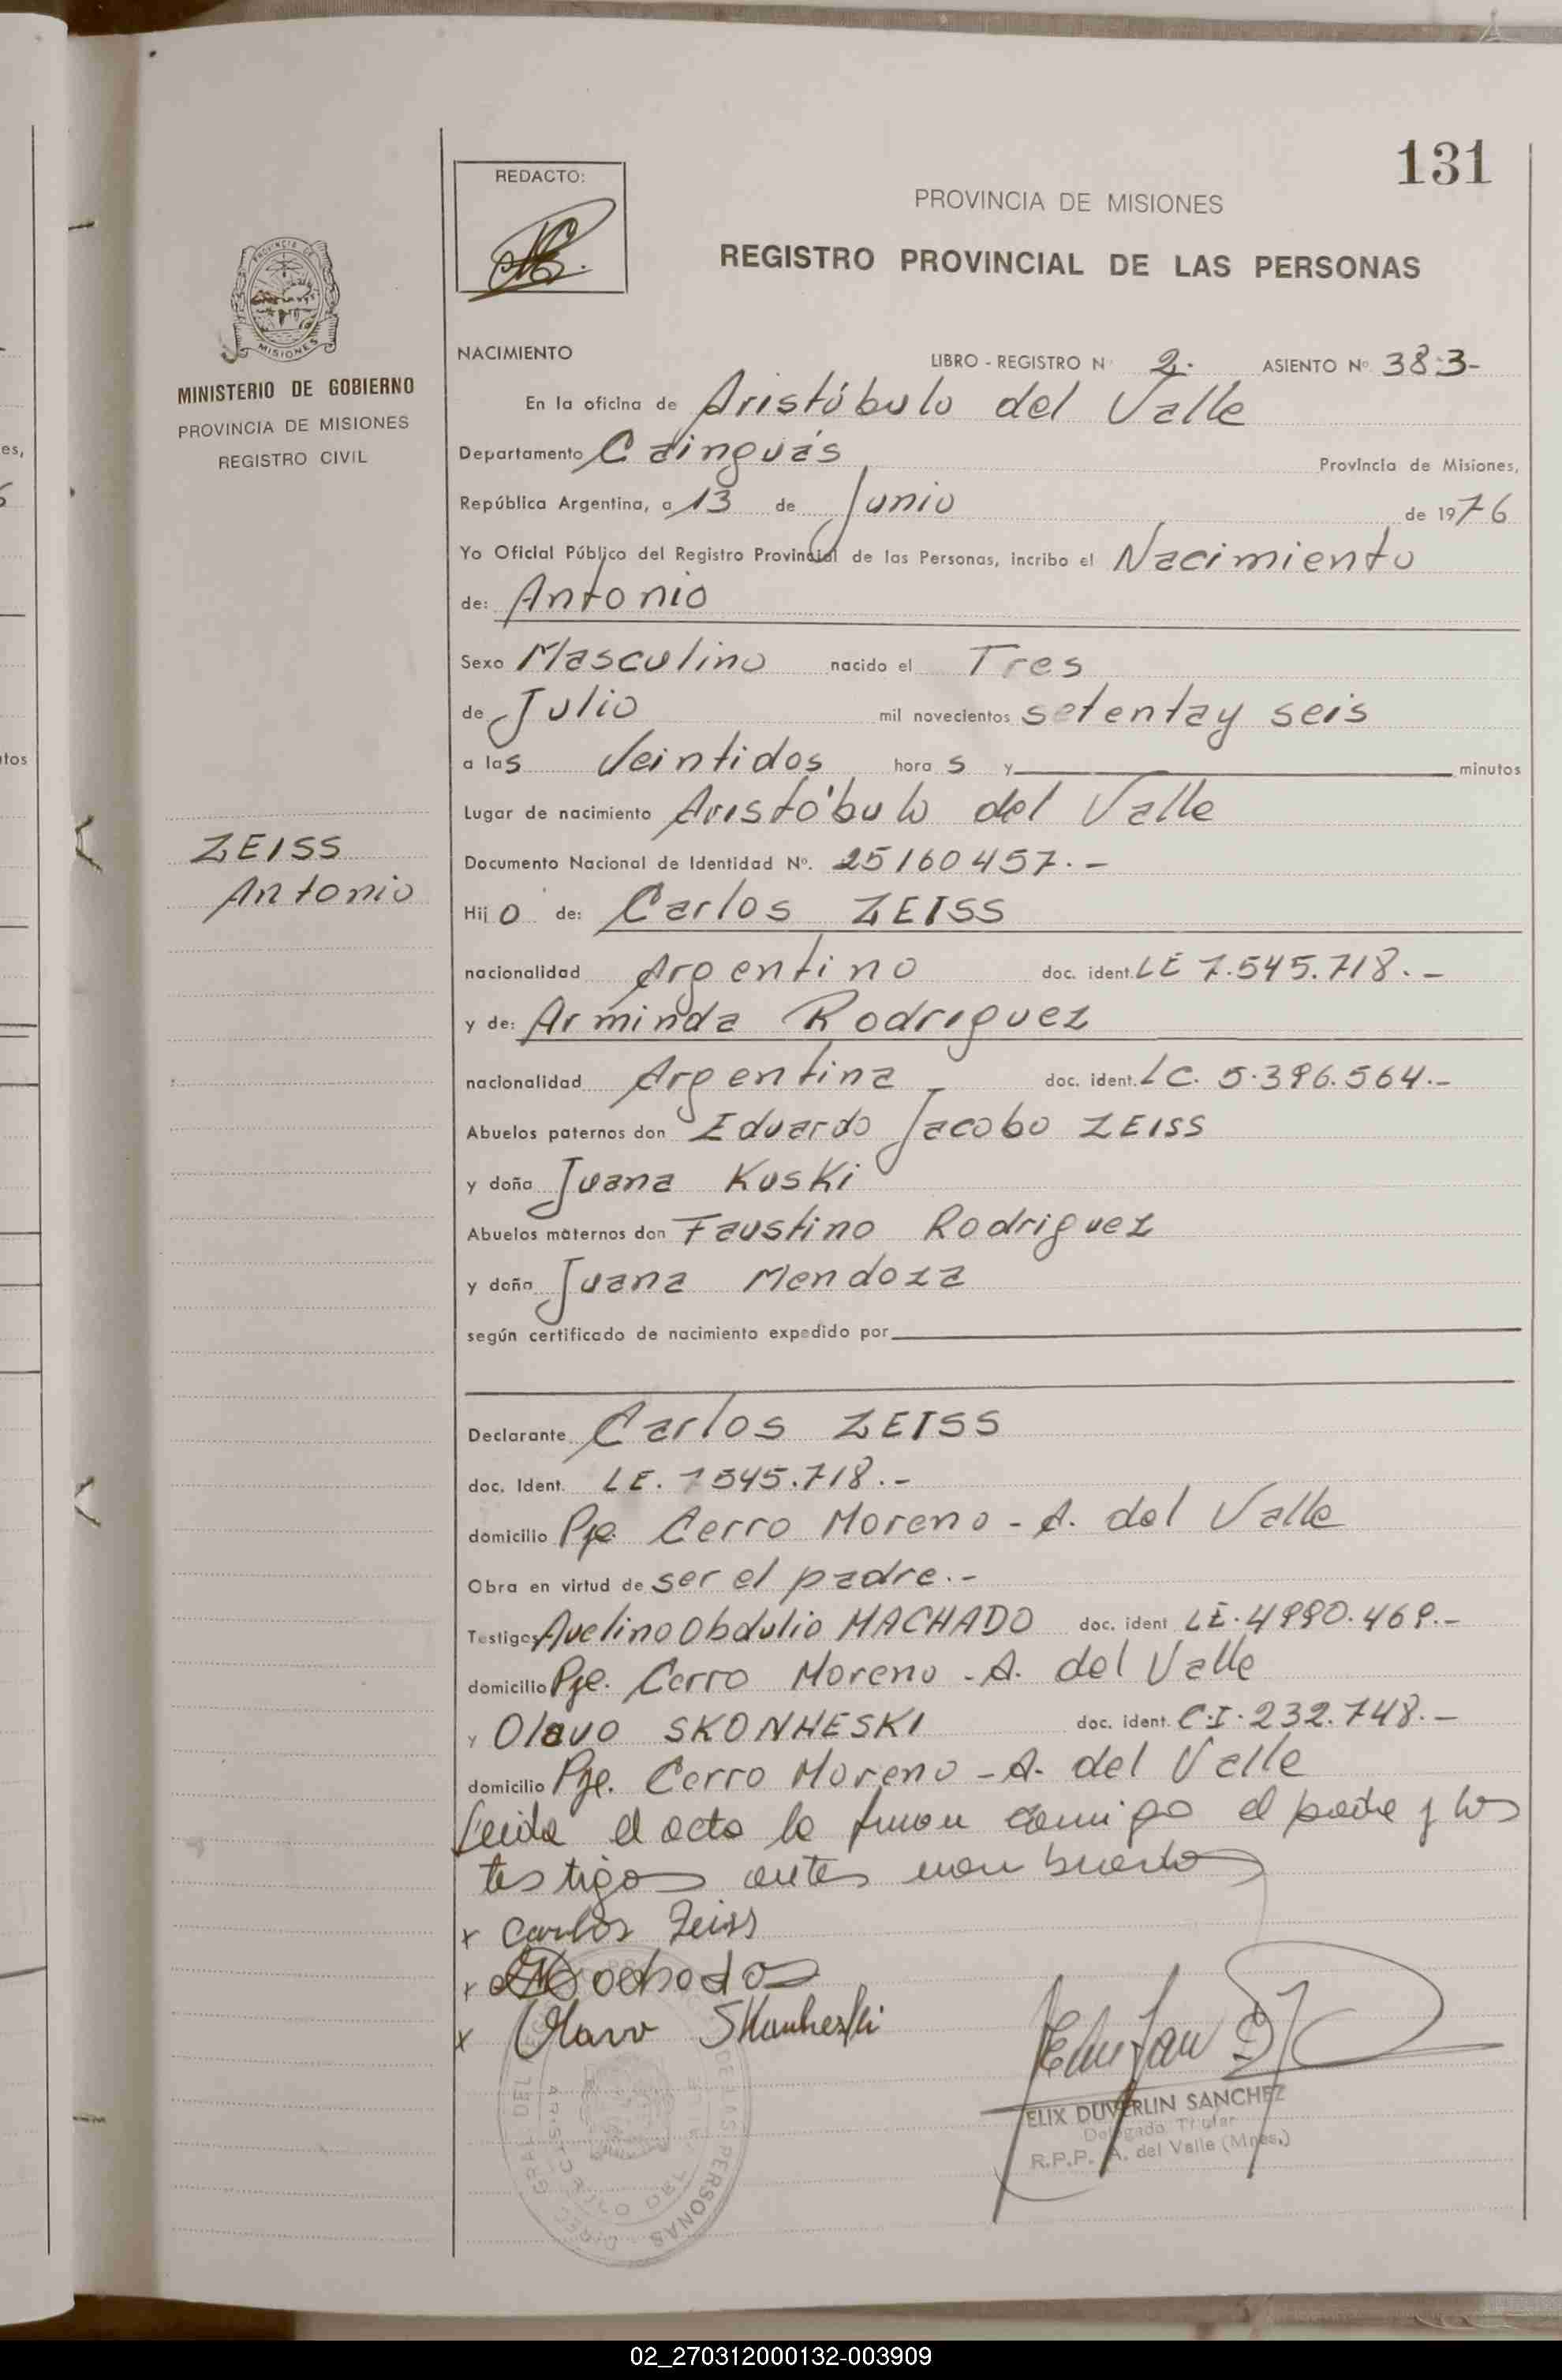 131
REDACTO:
PROVINCIA DE MISIONES
REGISTRO PROVINCIAL DE LAS PERSONAS
MISIONES
MINISTERIO DE GOBIERNO
PROVINCIA DE MISIONES
REGISTRO CIVIL
NACIMIENTO LIBRO - REGISTRO N 2. ASIENTO Nº 383-
En la oficina de Aristóbulo del Valle
Departamento Cainguás Provincia de Misiones,
República Argentina, a 13 de Junio de 1976
Yo Oficial Público del Registro Provincial de las Personas, incribo el Nacimiento
de: Antonio
Sexo Masculino nacido el Tres
de Julio mil novecientos setentay seis
a las Veintidos horas y minutos
Lugar de nacimiento Aristóbulo del Valle
ZEISS
Antonio
Documento Nacional de Identidad Nº. 25160457.-
Hijo de: Carlos ZEISS
nacionalidad Argentino doc. ident. LE 7.545.718.-
y de: Arminda Rodriguez
nacionalidad Argentina doc. ident. LC. 5.396.564.-
Abuelos paternos don Eduardo Jacobo ZEISS
y doña Juana Kuski
Abuelos maternos don Faustino Rodriguez
y doña Juana Mendoza
según certificado de nacimiento expedido por
Declarante Carlos ZEISS
doc. Ident. LE. 7545.718.-
domicilio Pje. Cerro Moreno - A. del Valle
Obra en virtud de ser el padre.-
Testigos Avelino Obdulio MACHADO doc. ident LE. 4990.469.-
domicilio Pje. Cerro Moreno - A. del Valle
y Olavo SKONHESKI doc. ident. C.I. 232.748.-
domicilio Pje. Cerro Moreno - A. del Valle
Leida el acta la firman comigo el padre y los
testigos antes nombrados
x Carlos Zeiss
x Machado
x Olavo Skonheski
ELIX DUVERLIN SANCHEZ
Delegado Titular
R.P.P. A. del Valle (Mnes.)
02_270312000132-003909